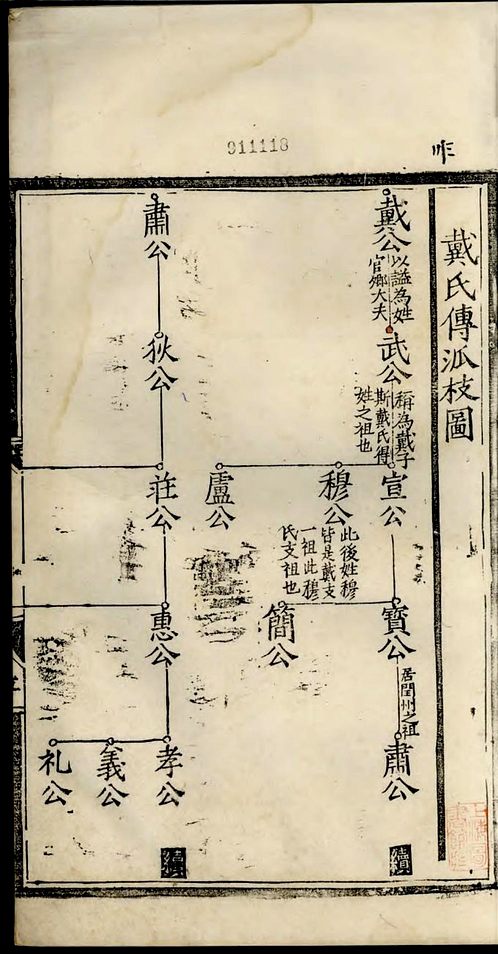 911118
昨
戴氏傳泒枝圖
戴公
以謚為姓
官鄉大夫
武公
稱為戴子
斯戴氏得
姓之祖也
宣公
穆公
此後姓穆
皆是戴支
一祖此穆
氏支祖也
盧公
寶公
居閏州之祖
簡公
肅公
續
肅公
狄公
莊公
惠公
孝公
義公
礼公
續